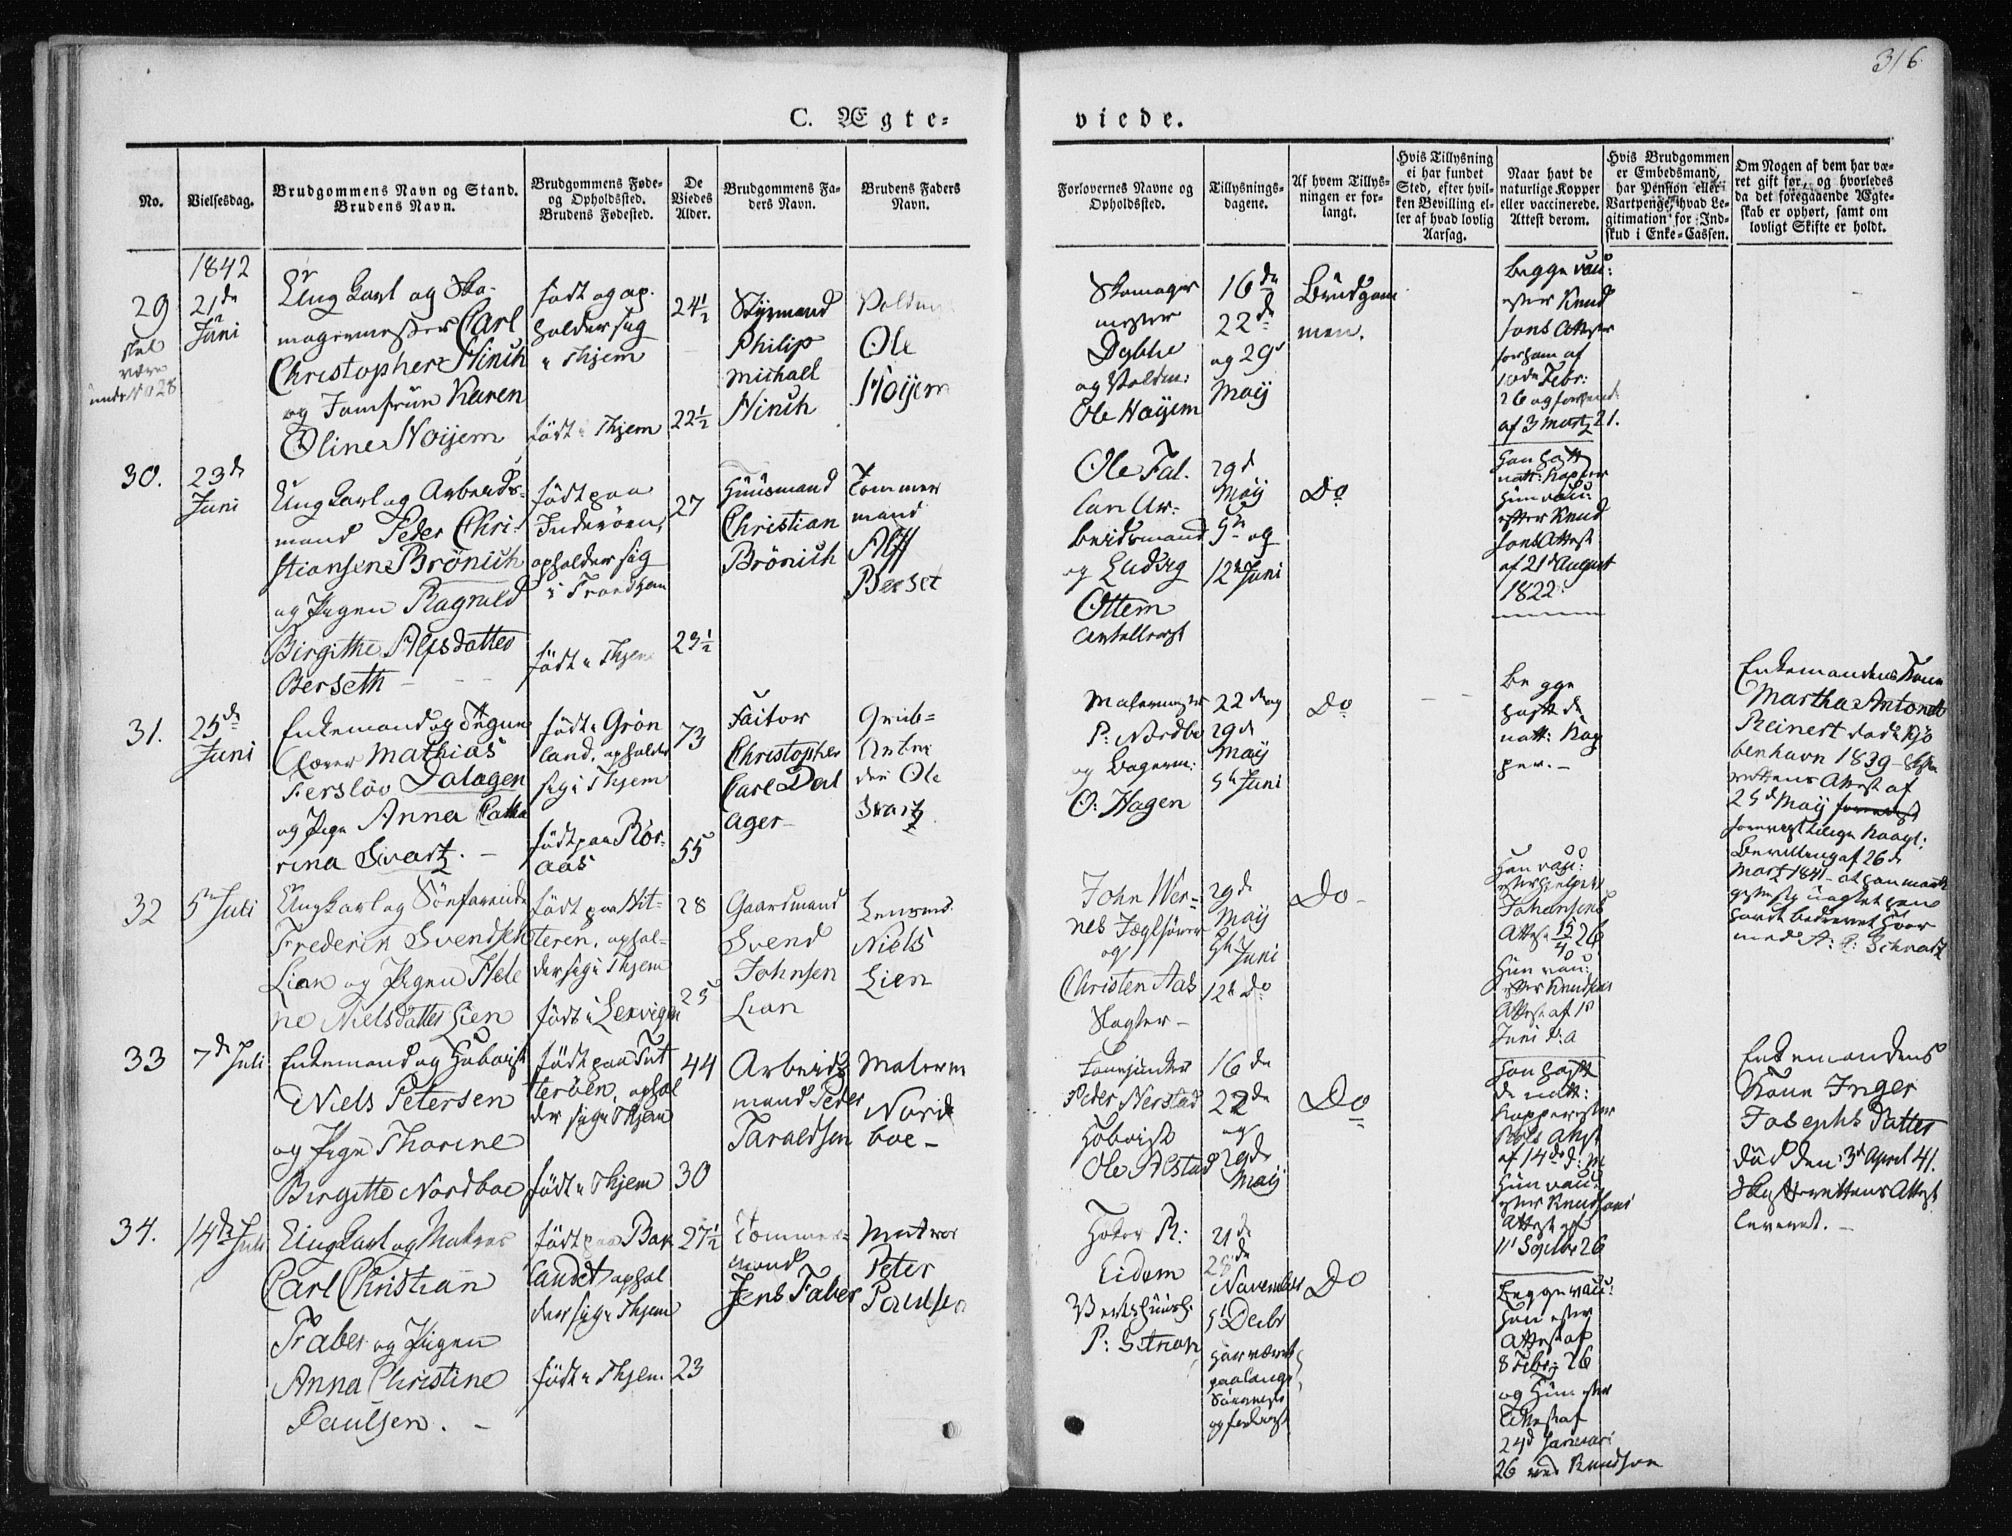 316
C. Ægte=
viede.
No.
Vielsesdag.
Brudgommens Navn og Stand.
Brudens Navn.
Brudgommens Føde-
og Opholdssted.
Brudens Fødested.
De
Viedes
Alder.
Brudgommens Fa-
ders Navn.
Brudens Faders
Navn.
Forlovernes Navne og
Opholdssted.
Tillysnings-
dagene.
Af hvem Tillys-
ningen er for-
langt.
Hvis Tillysning
ei har fundet
Sted, efter hvil-
ken Bevilling el-
ler af hvad lovlig
Aarsag.
Naar havt de
naturlige Kopper
eller vaccinerede.
Attest derom.
Hvis Brudgommen
er Embedsmand,
har Pension eller
Vartpenge, hvad Le-
gitimation for Ind-
skud i Enke-Cassen.
Om Nogen af dem har væ-
ret gift før, og hvorledes
da det foregaaende Ægte-
skab er ophørt, samt om
lovligt Skifte er holdt.
1842
29
skal
være
under No 28
21de
Juni
Ungkarl og Sko-
magermester Carl
Christopher Hinich
og Jomfrue Karen
Oline Hoijem
født og op-
holder sig
i Thjem
født i Thjem
24½
22½
Styrmand
Philip
Michael
Hinich
Ole
Hoijem
Skomager
mester
og
Ole Hoijem
16de
22de
og 29de
Maij
Brudgom
men.
Begge vac:
efter Knud
sons Attester
af
10de Febr:
26 og
af 3 Martz 21.
30.
23de
Juni
Ungkarl og Arbeids-
mand Peder Chri-
stiansen Brönich
og Pigen Ragnild
Birgithe Alfsdatter
Berseth
født paa
Inderöen,
opholder sig
i Trondhjem
født i Thjem
27
23½
Huusmand
Christian
Brönich
Tømmer
mand
Alff
Berset
Ole Fal-
Ar-
beidsmand
og Ludvig
Ottem
29de
Maij
5te og
12te Juni
Do
Han havt
natt: Kopper
Hun vac:
efter Knud
sons Attest
af 21de August
1822.
31.
25de
Juni
Enkemand og
Mathias
Ferslöv Dalager
og Pige Anna Catha
rina Svartz.
født i Grön
land, opholder
sig i Thjem
født paa Rör-
aas
73
55
Factor
Christopher
Carl Dal
ager
Grub-
Ole
Svartz
Malermester
P: Nordbo
og Bagerm:
O: Hagen
22de og
29de
Maij
5te Juni
Do
Begge
havt de
natt: Kop
per.
Enkemandens Kone
Martha Antonet
Reinert døde Kjö
benhavn 1839 - Skifte
rettens Attest af
25de Maij
Bevilling af 26de
Marz 1841 - at han maatte
gifte sig uagtet han
havde bedrevet Hoer
med A: C: Schvartz
32
5te Juli
Ungkarl og Søefarende
Frederik Svendsen
Lian og Pigen Hele
ne Nielsdatter Lien
født paa Hit-
teren, ophol-
der sig i Thjem
født i Lexvigen
28
25
Gaardmand
Svend
Johnsen
Lian
Lensmd.
Niels
Lien
John Wer-
nes
og
Christen Aas
Slagter
29de
Maij
5te Juni
12te Do
Do
Han vac:
efter
Johansens
Attest 15/4 26
Hun vac:
efter Knudsons
Attest af 1ste
Juni d: a
33
7de Juli
Enkemand og
Niels Petersen
og Pige Thorine
Birgitte Nordboe
født paa Tut
teröen, ophol
der sig i Thjem
født i Thjem
44
30
Arbeids
mand Peder
Taraldsen
Malerm
Nord
boe
Peder Nerstad
Ole
16de
22de
og
29de
Maij
Do
Han havt
de natt:
Kopper efter
Attest
af 14de d: M
Hun vac:
efter Knudsons
Attest af
11te Septbr 26
Enkemandens
Kone Inger
Josephs Datter
död den 3de April 41.
Skifterettens Attest
leveret.
34.
14de Juli
Ungkarl og Matros
Carl Christian
Faber og Pigen
Anna Christine
Paulsen.
født paa Bak
landet, ophol
der sig i Thjem
født i Thjem.
27½
23
Tömmer-
mand
Jens Faber
Matros
Peter
Paulsen
Høker R:
Eidem
P: Sitrian
21de
28de
November
5te Decbr
har været
paa lange
Do
Begge vac:
han efter
Attest af
8 Febr: 26
og Hun efter
Attest af
24de Januari
26 ved Knudson